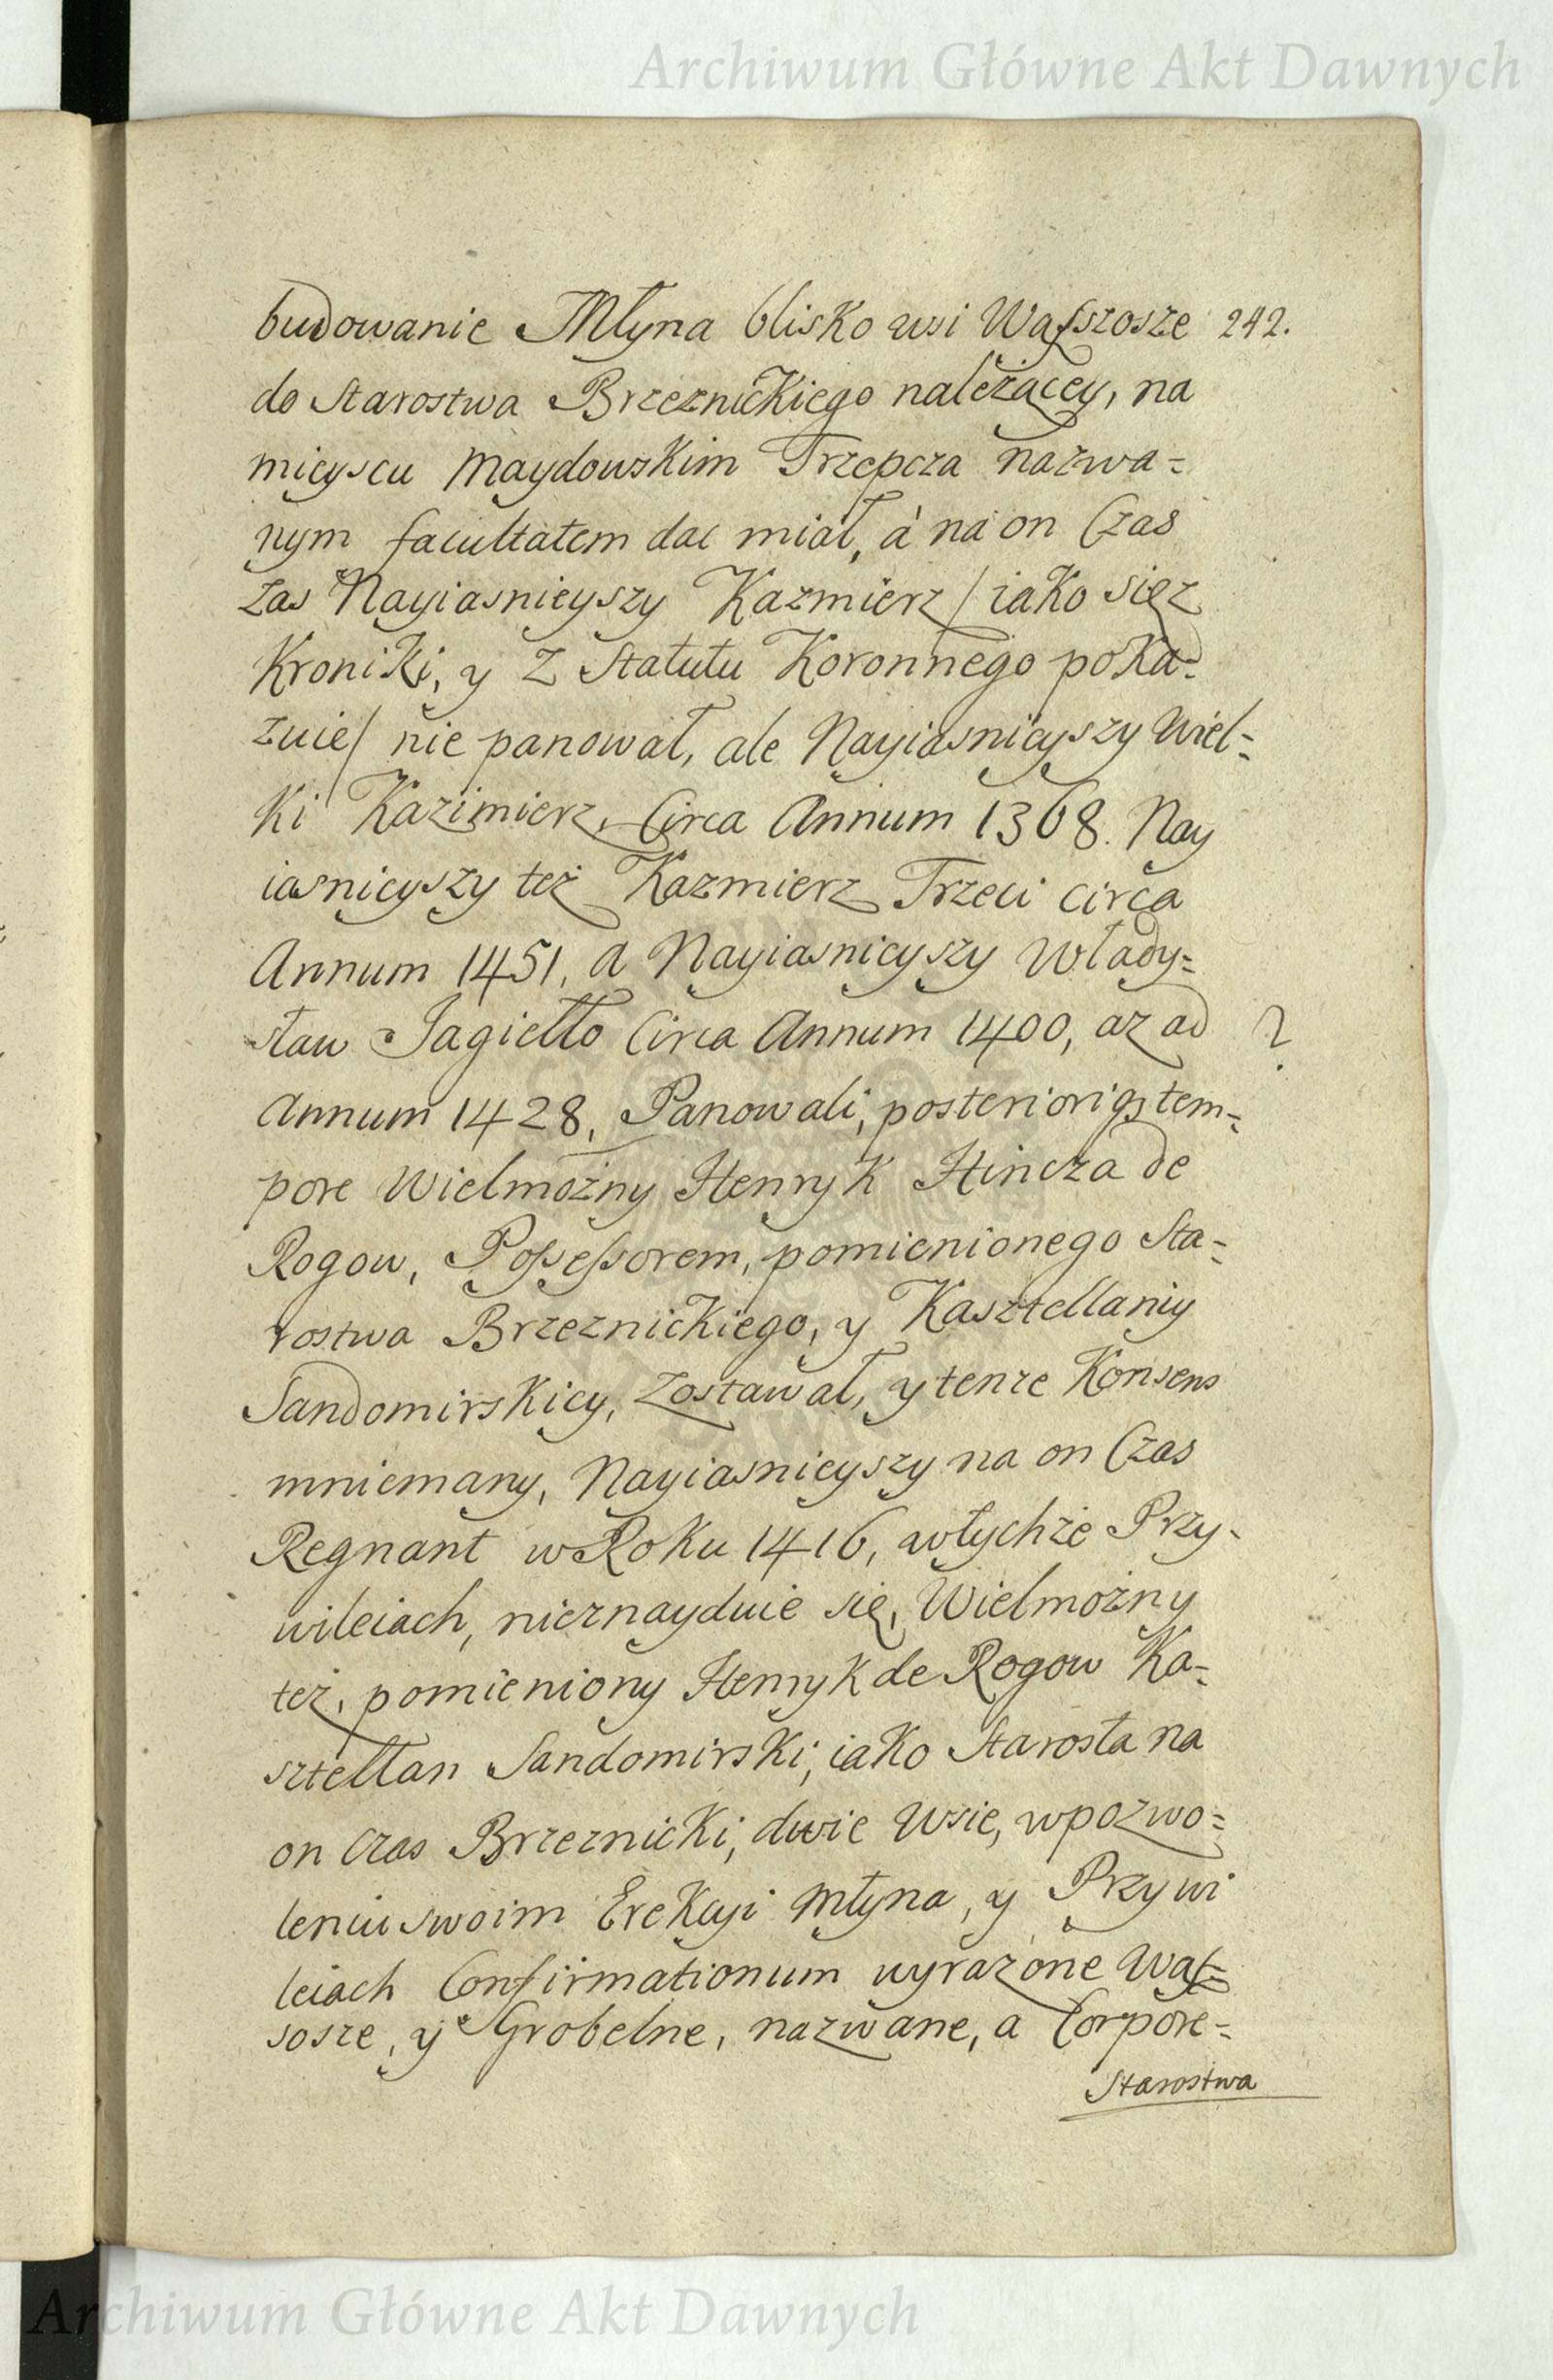 Archiwum Główne Akt Dawnych
budowanie Młyna blisko wsi Waſszosze 242.
do Starostwa Brzeznickiego należącey, na
mieyscu Maydowskim Trzepcza nazwa=
nym facultatem dac miał, à na on Czas
zas Nayiasnieyszy Kazmierz / iako się z
Kroniki, y z Statutu Koronnego poka=
zuie / nie panował, ale Nayiasnieyszy Wiel=
ki Kazimierz, Circa Annum 1368. Nay
iasnieyszy też Kazmierz Trzeci circa
Annum 1451, a Nayiasnieyszy Włady=
sław Jagiełło Circa Annum 1400, az ad ?
Annum 1428, Panowali, posterioriq; tem=
pore Wielmożny Henryk Hincza de
Rogow, Poſseſsorem, pomienionego Sta=
rostwa Brzeznickiego, y Kasztellaniy
Sandomirskiey, zostawał, y tenze Konsens
mniemany, Nayiasnieyszy na on Czas
Regnant w Roku 1416, w tychże Przy=
wileiach, nieznayduie się, Wielmożny
też, pomieniony Henryk de Rogow Ka=
sztellan Sandomirski, iako Starosta na
on czas Brzeznicki, dwie Wsie, w pozwo=
leniu swoim Erekcyi Młyna, y Przywi
leiach Confirmationum wyrażone Waſ=
sosze, y Grobelne, nazwane, a Corpore=
Starostwa
Archiwum Główne Akt Dawnych